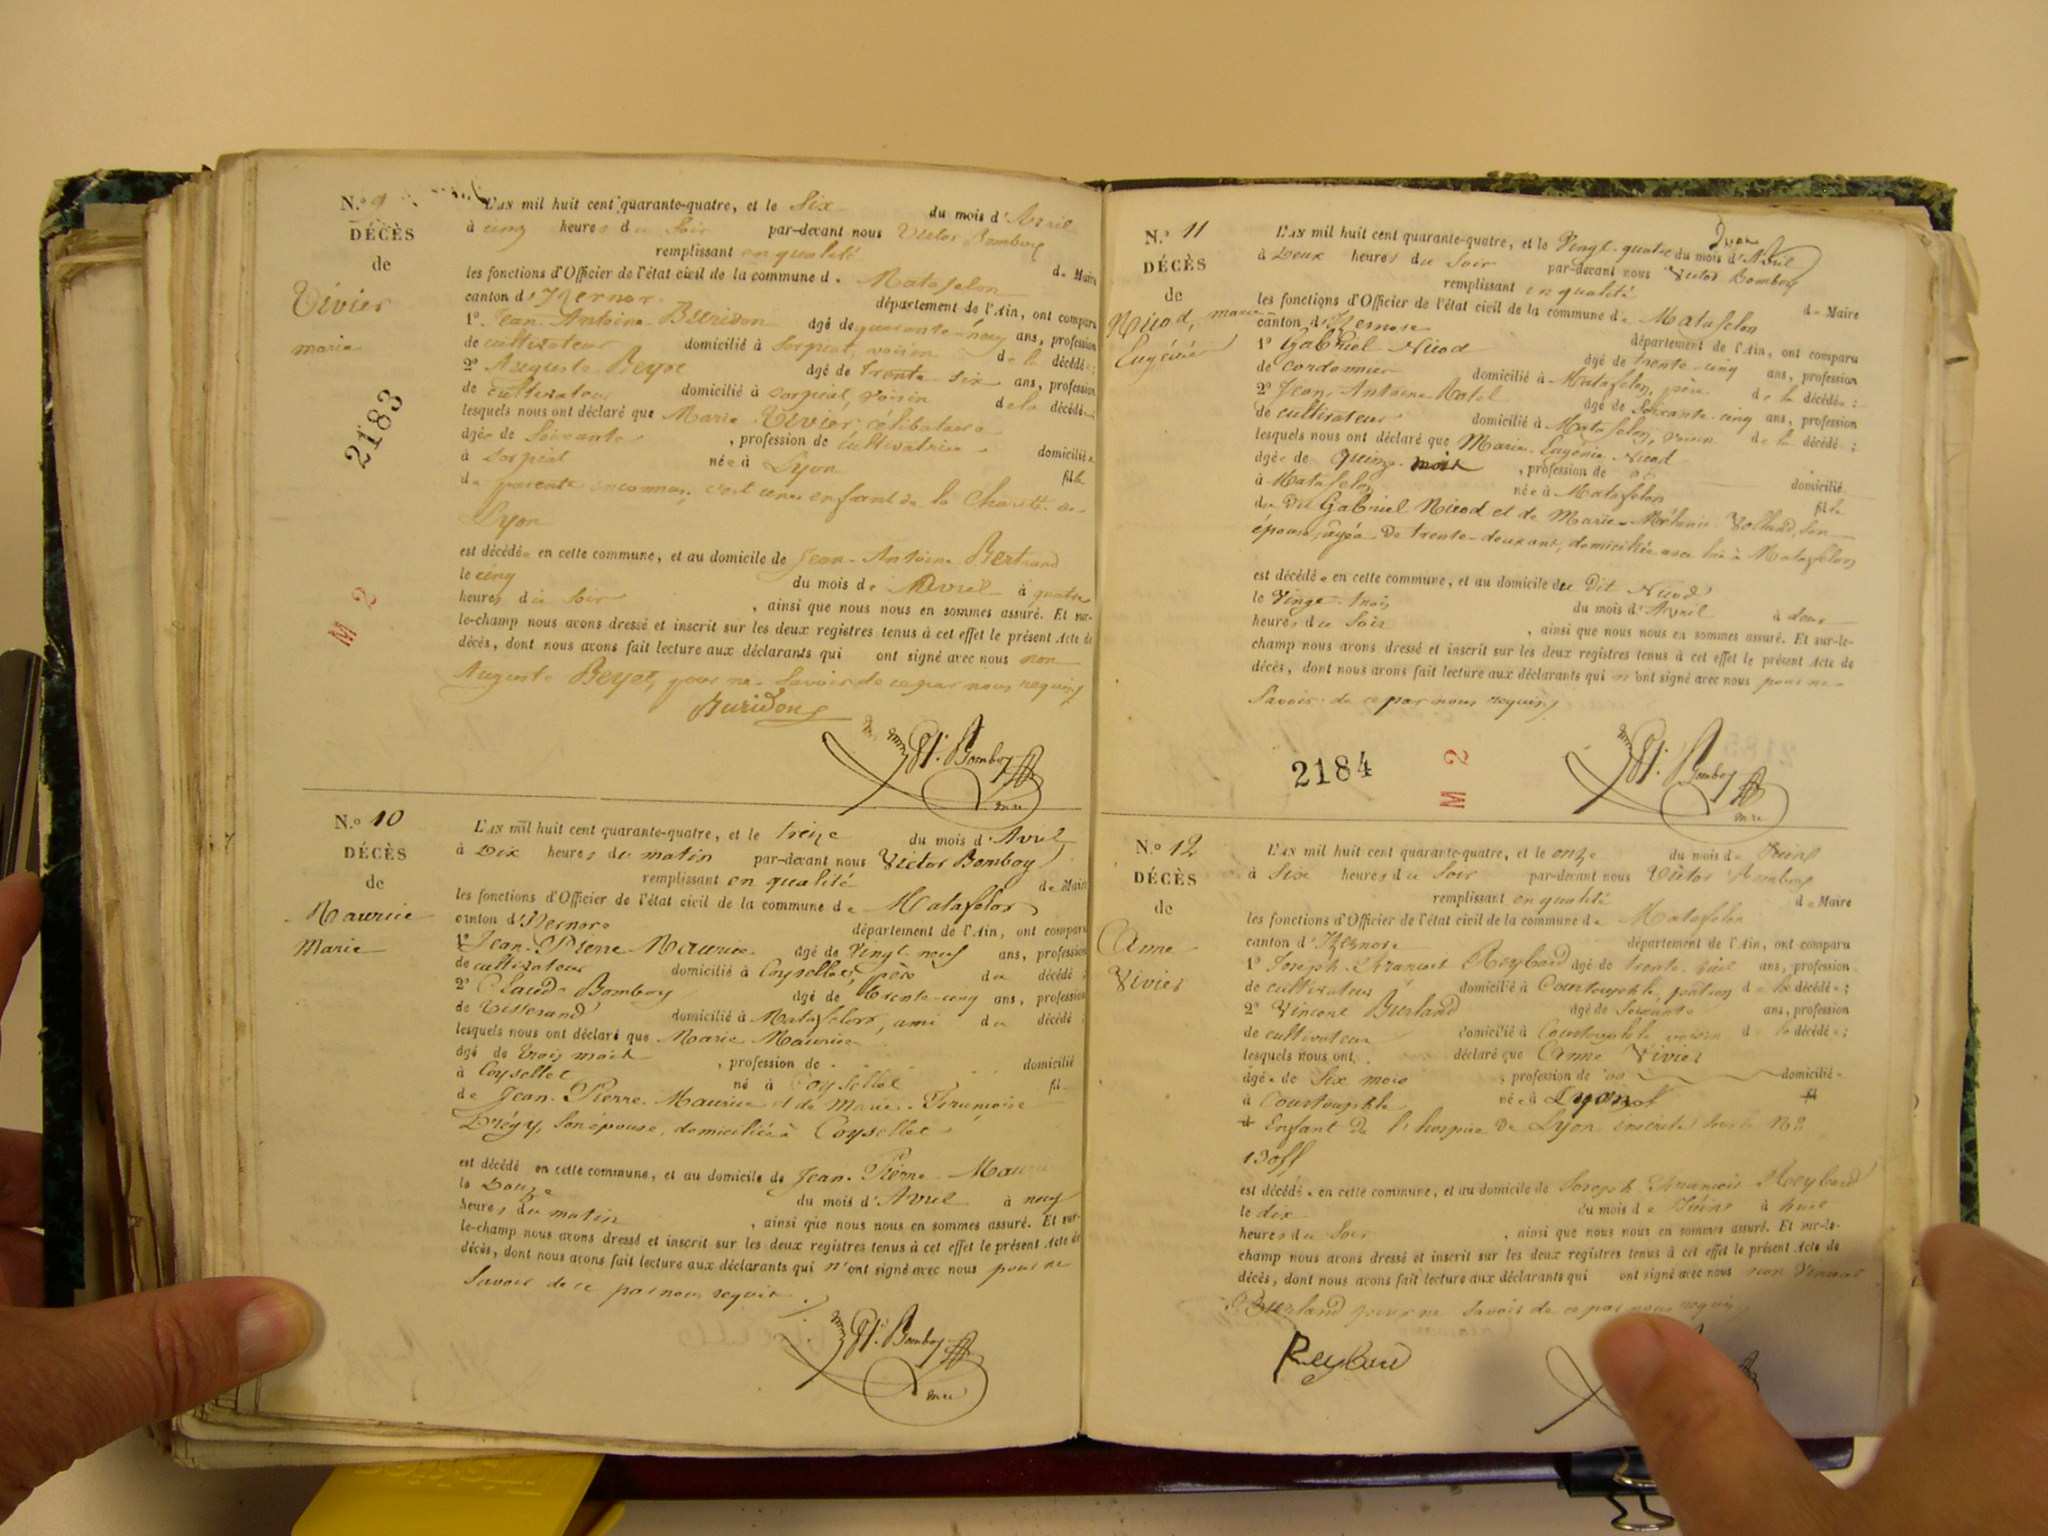 N.° 9
DÉCÈS
de
Vivier
marie
2183
M 2
L'AN mil huit cent quarante-quatre, et le Six du mois d'Avril
à cinq heures du Soir par-devant nous Victor Bomboy
remplissant en qualité de Maire
les fonctions d'Officier de l'état civil de la commune de Matafelon
canton d'Izernore département de l'Ain, ont comparu
1° Jean-Antoine Buridon âgé de quarante-neuf ans, profession
de cultivateur domicilié à Sorpiat, voisin de la décédée;
2° Auguste Beyet âgé de trente-six ans, profession
de cultivateur domicilié à Sorpiat, voisin de la décédée;
lesquels nous ont déclaré que Marie Vivier, célibataire
âgée de Soixante , profession de cultivatrice domiciliée
à Sorpiat née à Lyon fille
de parents inconnus, c'est une enfant de la Charité de
Lyon
est décédée en cette commune, et au domicile de Jean-Antoine Bertrand
le cinq du mois de Avril à quatre
heures du Soir , ainsi que nous nous en sommes assuré. Et sur-
le-champ nous avons dressé et inscrit sur les deux registres tenus à cet effet le présent Acte de
décès, dont nous avons fait lecture aux déclarants qui ont signé avec nous non
Auguste Beyet, pour ne Savoir de ce par nous requis
Buridon
Vr. Bomboy
mre
N.° 10
DÉCÈS
de
Maurice
Marie
L'AN mil huit cent quarante-quatre, et le treize du mois d'Avril
à Dix heures du matin par-devant nous Victor Bomboy
remplissant en qualité de Maire
les fonctions d'Officier de l'état civil de la commune de Matafelon
canton d'Izernore département de l'Ain, ont comparu
1° Jean-Pierre Maurice âgé de Vingt-neuf ans, profession
de cultivateur domicilié à Coysellet, père du décédé;
2° Claude Bomboy âgé de trente-cinq ans, profession
de Tisserand domicilié à Matafelon, ami du décédé
lesquels nous ont déclaré que Marie Maurice
âgé de trois mois , profession de domicilié
à Coysellet né à Coysellet fil
de Jean-Pierre Maurice et de Marie
son épouse, domiciliée à Coysellet
est décédé en cette commune, et au domicile de Jean-Pierre Maurice
le Douze du mois d'Avril à neuf
heures du matin , ainsi que nous nous en sommes assuré. Et sur-
le-champ nous avons dressé et inscrit sur les deux registres tenus à cet effet le présent Acte de
décès, dont nous avons fait lecture aux déclarants qui n'ont signé avec nous pour ne
Savoir de ce par nous requis.
Vr. Bomboy
mre
N.° 11
DÉCÈS
de
Nicod, marie
Eugénie
L'AN mil huit cent quarante-quatre, et le Vingt-quatre du mois d'Avril
à Deux heures du Soir par-devant nous Victor Bomboy
remplissant en qualité de Maire
les fonctions d'Officier de l'état civil de la commune de Matafelon
canton d'Izernore département de l'Ain, ont comparu
1° Gabriel Nicod âgé de trente-cinq ans, profession
de cordonnier domicilié à Matafelon, père de la décédée;
2° Jean-Antoine âgé de Soixante-cinq ans, profession
de cultivateur domicilié à Matafelon, voisin de la décédé;
lesquels nous ont déclaré que Marie-Eugénie Nicod
âgée de quinze mois , profession de domicilié
à Matafelon née à Matafelon fille
du dit Gabriel Nicod et de Marie-Mélanie Volland, son
épouse, âgée de trente-deux ans, domiciliée avec lui à Matafelon
est décédée en cette commune, et au domicile du dit Nicod
le Vingt-trois du mois d'Avril à deux
heures du Soir , ainsi que nous nous en sommes assuré. Et sur-le-
champ nous avons dressé et inscrit sur les deux registres tenus à cet effet le présent Acte de
décès, dont nous avons fait lecture aux déclarants qui n'ont signé avec nous pour ne
Savoir de ce par nous requis
2184
M 2
Vr. Bomboy
mre
N.° 12
DÉCÈS
de
Anne
Vivier
L'AN mil huit cent quarante-quatre, et le onze du mois de Juin
à Six heures du Soir par-devant nous Victor Bomboy
remplissant en qualité de Maire
les fonctions d'Officier de l'état civil de la commune de Matafelon
canton d'Izernore département de l'Ain, ont comparu
1° Joseph-François Reybard âgé de trente ans, profession
de cultivateur domicilié à Courtouphle, patron de la décédée;
2° Vincent Burland âgé de Soixante ans, profession
de cultivateur domicilié à Courtouphle voisin de la décédée;
lesquels nous ont déclaré que Anne Vivier
âgée de Six mois , profession de domiciliée
à Courtouphle née à Lyon fil
d Enfant de l'hospice de Lyon inscrite sous le N°
est décédée en cette commune, et au domicile de Joseph-François Reybard
le dix du mois de Juin à huit
heures du Soir , ainsi que nous nous en sommes assuré. Et sur-le-
champ nous avons dressé et inscrit sur les deux registres tenus à cet effet le présent Acte de
décès, dont nous avons fait lecture aux déclarants qui ont signé avec nous non Vincent
Burland pour ne Savoir de ce par nous requis
Reybard